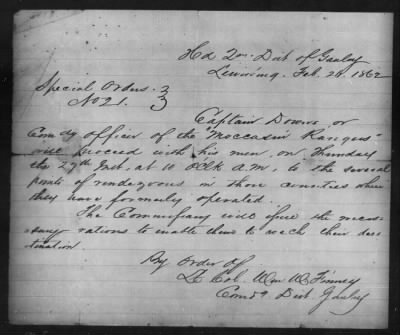 Hd Qrs Dist of Gauley
Lewisburg, Feb. 1862
Special Orders }
No 21. }
Captain Downs or
Comdg officer of the "Moccasin Rangers"
will proceed with his men, on Thursday
the 27th Inst, at 10 o'clk a.m., to the several
points of rendezvous in those counties where
they have formerly operated.
The Commissary will issue the neces-
sary rations to enable them to reach their des-
tination.
By order of
Lt Col. Wm W. Finney
Comdg Dist Gauley